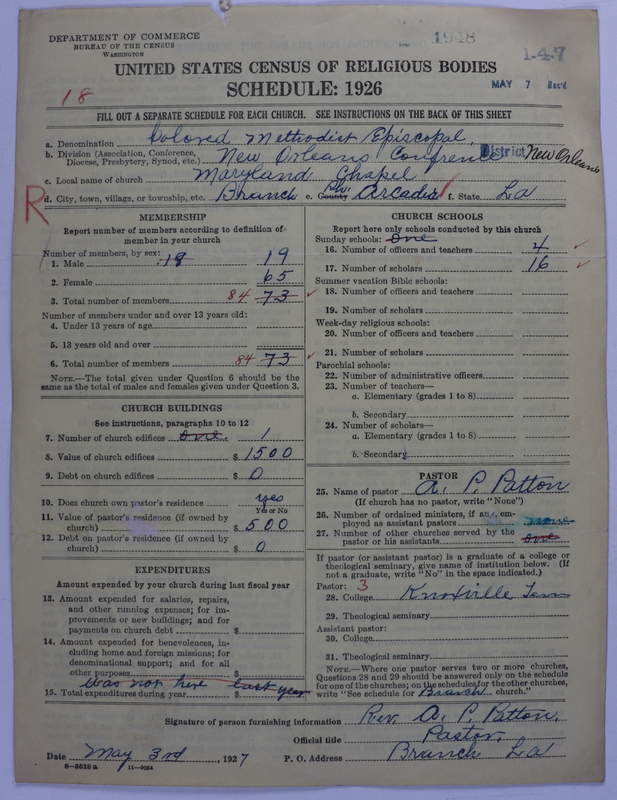 DEPARTMENT OF COMMERCE
BUREAU OF THE CENSUS
WASHINGTON
1948
1-4-7
MAY 7 Rec'd
UNITED STATES CENSUS OF RELIGIOUS BODIES
SCHEDULE: 1926
18
FILL OUT A SEPARATE SCHEDULE FOR EACH CHURCH. SEE INSTRUCTIONS ON THE BACK OF THIS SHEET
a. Denomination Colored Methodist Episcopal
b. Division (Association, Conference, Diocese, Presbytery, Synod, etc.) New Orleans Conference District New Orleans
c. Local name of church Maryland Chapel
R
d. City, town, village, or township, etc. Branch e. County Arcadia f. State La
MEMBERSHIP
Report number of members according to definition of member in your church
Number of members, by sex:
1. Male 19 19
2. Female 65
3. Total number of members 84 73
Number of members under and over 13 years old:
4. Under 13 years of age
5. 13 years old and over
6. Total number of members 84 73
NOTE.—The total given under Question 6 should be the same as the total of males and females given under Question 3.
CHURCH BUILDINGS
See instructions, paragraphs 10 to 12
7. Number of church edifices one. 1
8. Value of church edifices $ 1500
9. Debt on church edifices $ 0
10. Does church own pastor's residence yes
Yes or No
11. Value of pastor's residence (if owned by church) $ 500
12. Debt on pastor's residence (if owned by church) $ 0
EXPENDITURES
Amount expended by your church during last fiscal year
13. Amount expended for salaries, repairs, and other running expenses; for improvements or new buildings; and for payments on church debt $
14. Amount expended for benevolences, including home and foreign missions; for denominational support; and for all other purposes $
Was not here last year
15. Total expenditures during year $
CHURCH SCHOOLS
Report here only schools conducted by this church
Sunday schools: one
16. Number of officers and teachers 4
17. Number of scholars 16
Summer vacation Bible schools:
18. Number of officers and teachers
19. Number of scholars
Week-day religious schools:
20. Number of officers and teachers
21. Number of scholars
Parochial schools:
22. Number of administrative officers
23. Number of teachers—
a. Elementary (grades 1 to 8)
b. Secondary
24. Number of scholars—
a. Elementary (grades 1 to 8)
b. Secondary
PASTOR
25. Name of pastor A. P. Patton
(If church has no pastor, write "None")
26. Number of ordained ministers, if any, employed as assistant pastors none
27. Number of other churches served by the pastor or his assistants one
If pastor (or assistant pastor) is a graduate of a college or theological seminary, give name of institution below. (If not a graduate, write "No" in the space indicated.)
Pastor: 3
28. College Knoxville Tenn
29. Theological seminary
Assistant pastor:
30. College
31. Theological seminary
NOTE.—Where one pastor serves two or more churches, Questions 28 and 29 should be answered only on the schedule for one of the churches; on the schedules for the other churches, write "See schedule for Branch church."
Signature of person furnishing information Rev. A. P. Patton.
Official title Pastor.
Date May 3rd, 1927 P. O. Address Branch La
8-5518 a 11-9054